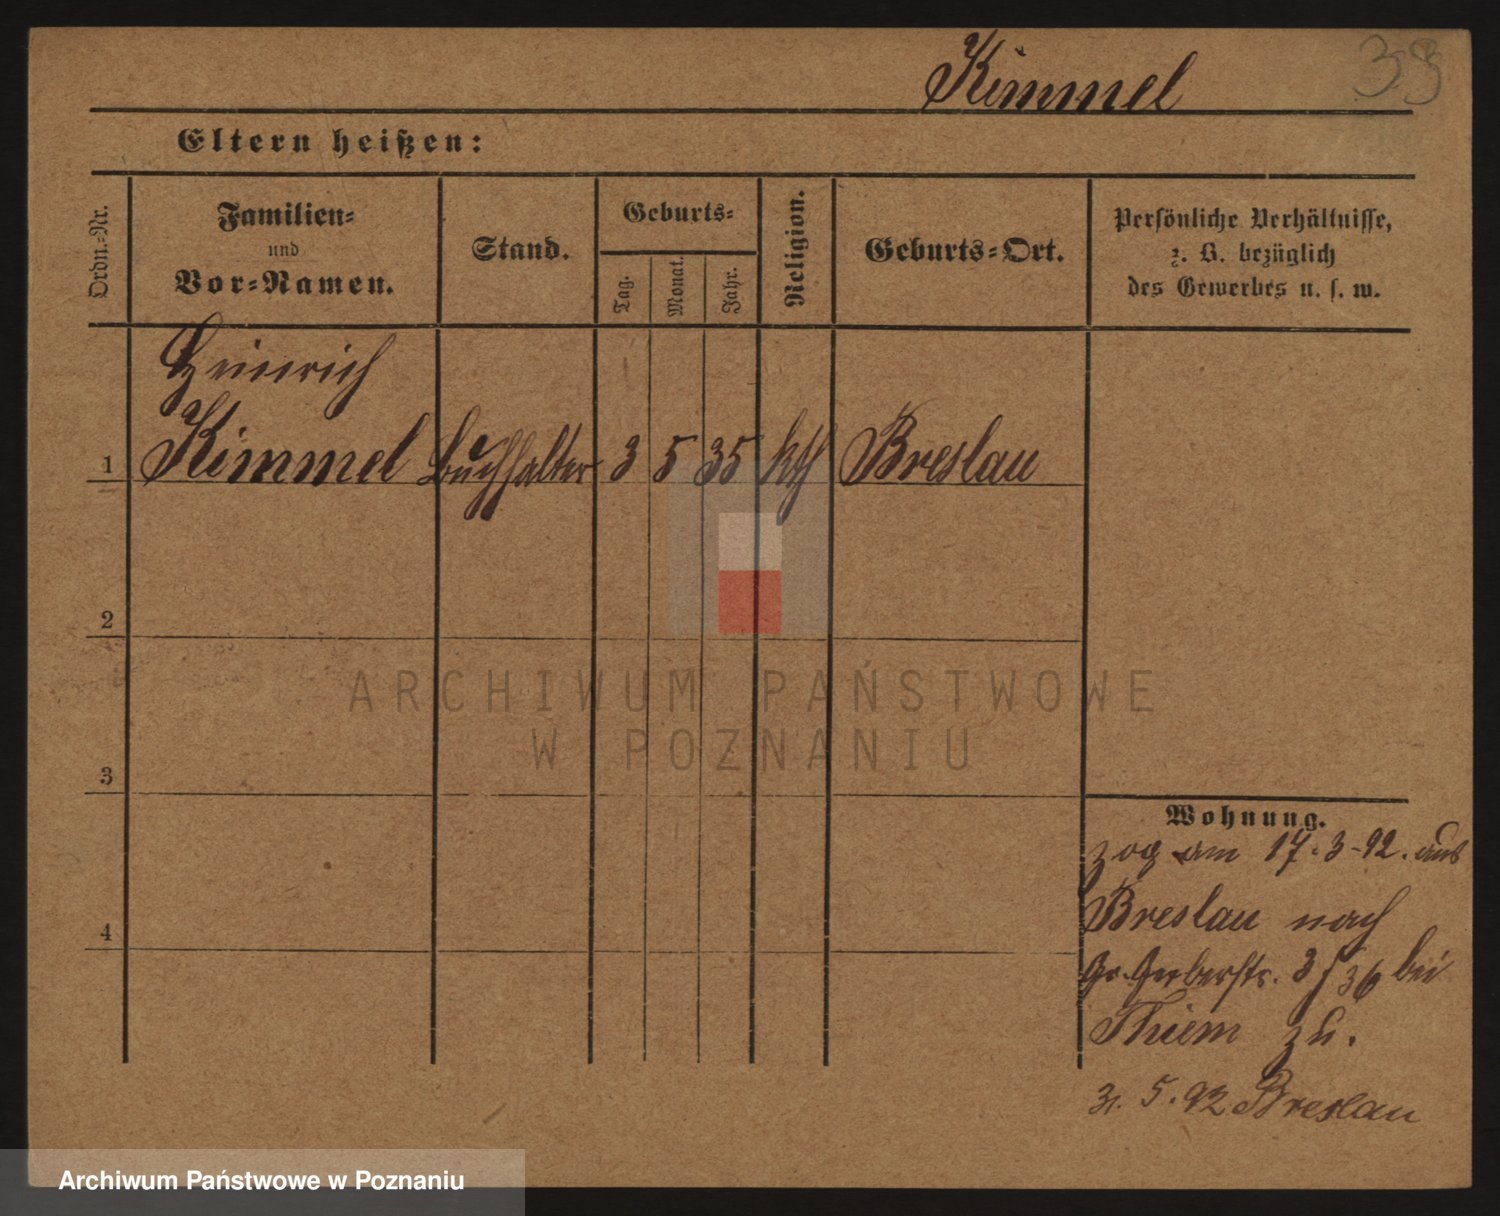 Kimmel
Eltern heißen:
Ordn.-Nr.
Familien-
und
Vor-Namen.
Stand.
Geburts-
Tag.
Monat.
Jahr.
Religion.
Geburts-Ort.
Persönliche Verhältnisse,
z. B. bezüglich
des Gewerbes u. s. w.
Heinrich
1 Kimmel Buchhalter 3 5 35 kth Breslau
2
3
4
ARCHIWUM PAŃSTWOWE
W POZNANIU
Wohnung.
zog am 17.3-92. aus
Breslau nach
Gr. Gerberstr. 36 bei
Thiem zu.
31. 5. 92 Breslau
Archiwum Państwowe w Poznaniu